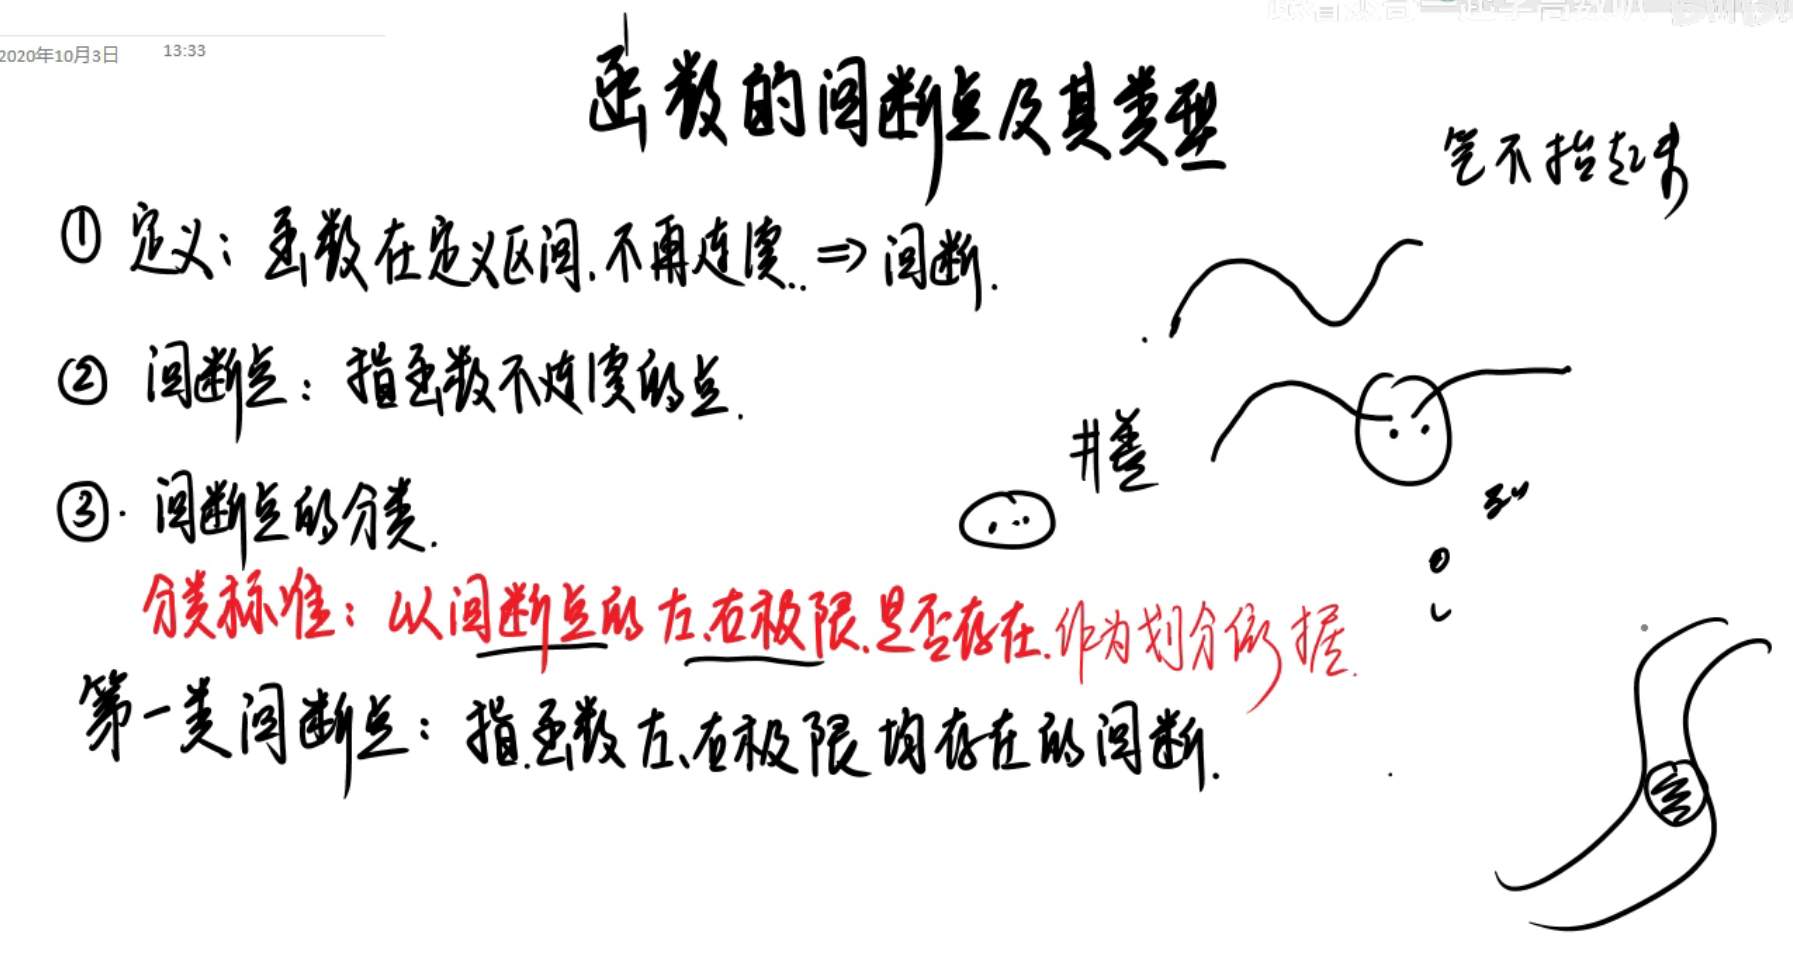 2020年10月3日 13:33
函数的间断点及其类型
笔不抬起来
① 定义：函数在定义区间.不再连续.. ⇒ 间断.
② 间断点：指函数不连续的点.
井盖
③. 间断点的分类.
分类标准：以间断点的左.右极限.是否存在.作为划分依据.
第一类间断点：指函数左、右极限均存在的间断.